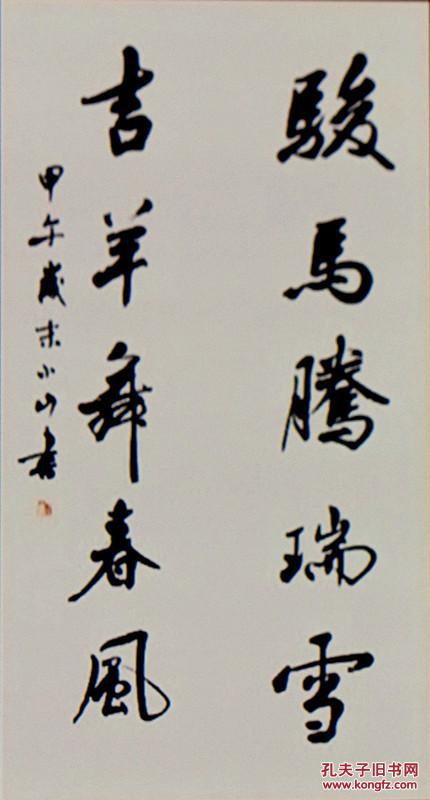 駿馬騰瑞雪
吉羊舞春風
甲午歲末小山書
孔夫子旧书网
www.kongfz.com